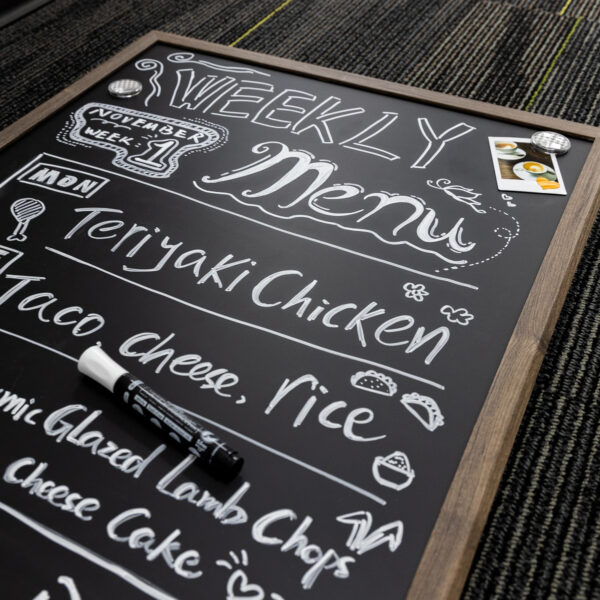 WEEKLY
NOVEMBER
WEEK: 1
Menu
MON
Teriyaki Chicken
Taco, cheese, rice
Glazed Lamb Chops
Cheese Cake